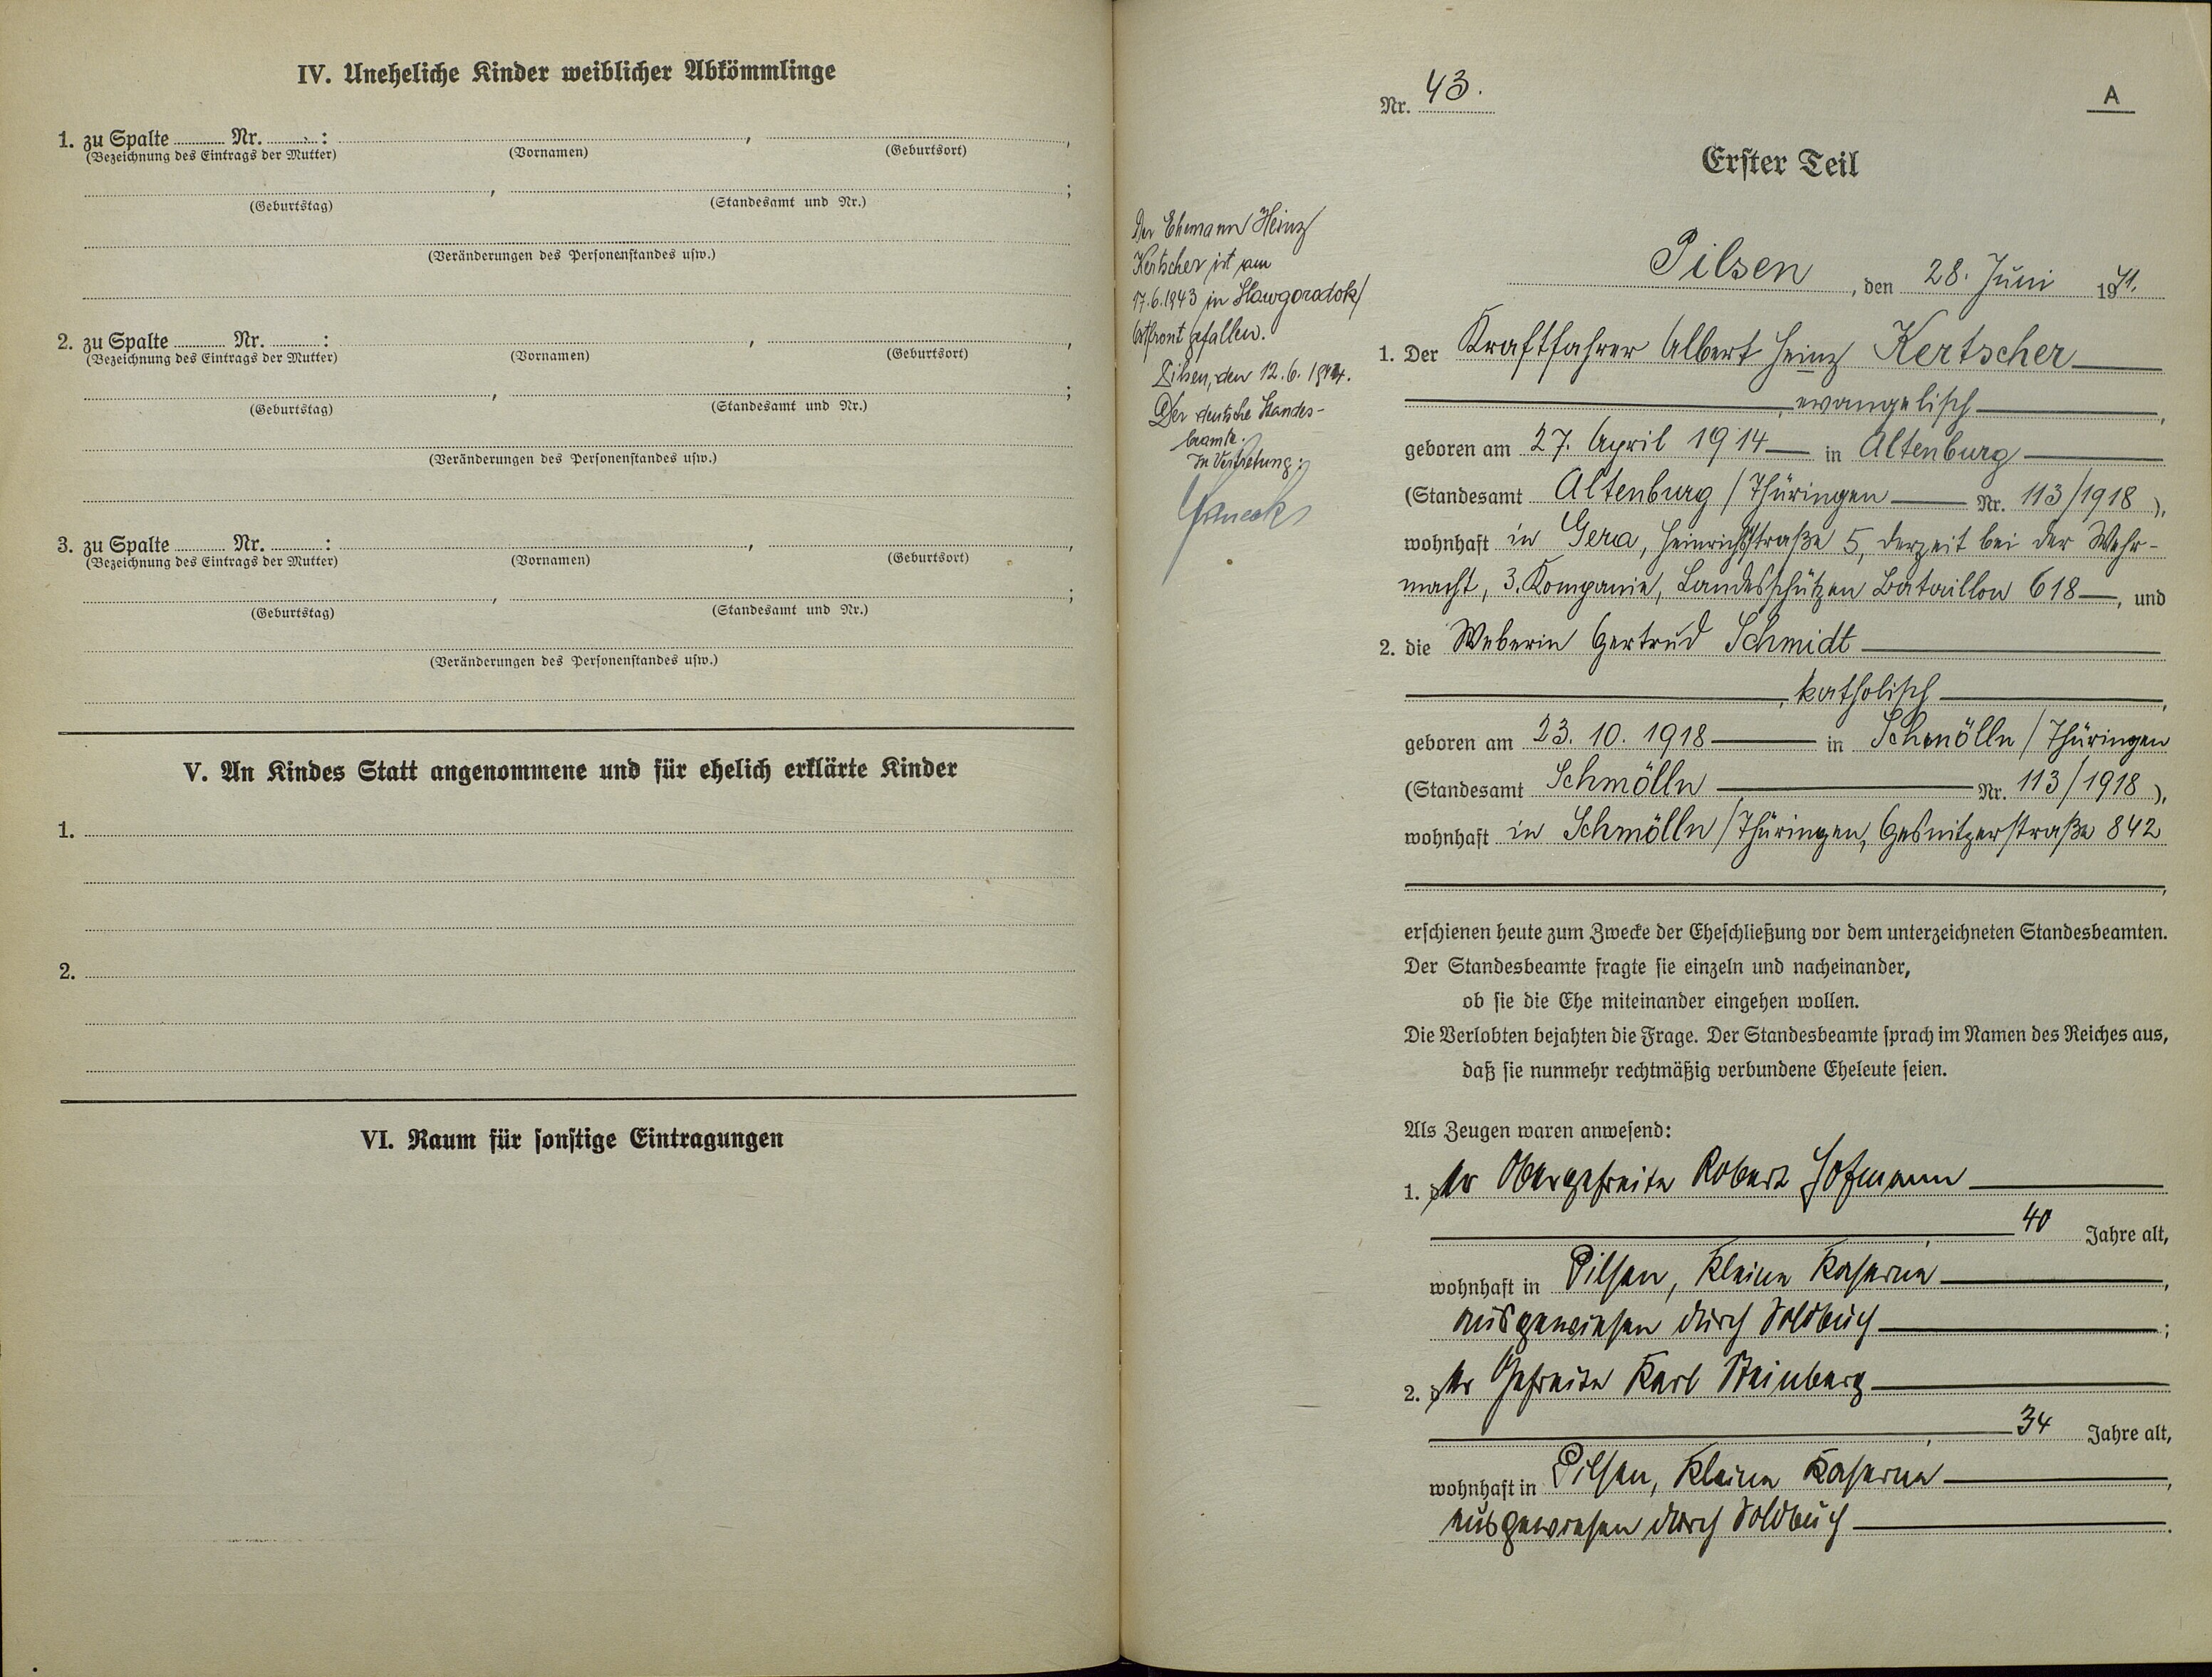 IV. Uneheliche Kinder weiblicher Abkömmlinge
1. zu Spalte ........ Nr. ........ : ........ , ........ ,
(Bezeichnung des Eintrags der Mutter) (Vornamen) (Geburtsort)
........ , ........ ;
(Geburtstag) (Standesamt und Nr.)
(Veränderungen des Personenstandes usw.)
2. zu Spalte ........ Nr. ........ : ........ , ........ ,
(Bezeichnung des Eintrags der Mutter) (Vornamen) (Geburtsort)
........ , ........ ;
(Geburtstag) (Standesamt und Nr.)
(Veränderungen des Personenstandes usw.)
3. zu Spalte ........ Nr. ........ : ........ , ........ ,
(Bezeichnung des Eintrags der Mutter) (Vornamen) (Geburtsort)
........ , ........ ;
(Geburtstag) (Standesamt und Nr.)
(Veränderungen des Personenstandes usw.)
V. An Kindes Statt angenommene und für ehelich erklärte Kinder
1.
2.
VI. Raum für sonstige Eintragungen
Nr. 43.
A
Erster Teil
Der Ehemann Heinz
Kertscher ist am
17.6.1943 in Slawgorodok/
Ostfront gefallen.
Pilsen, den 12.6.1944.
Der deutsche Standes-
beamte.
In Vertretung:
Pilsen, den 28. Juni 1941.
1. Der Kraftfahrer Albert Heinz Kertscher
, evangelisch ,
geboren am 27. April 1914 in Altenburg
(Standesamt Altenburg / Thüringen Nr. 113/1918 ),
wohnhaft in Gera, Heinrichstraße 5, derzeit bei der Wehr-
macht, 3. Kompanie, Landesschützen Bataillon 618 , und
2. die Weberin Gertrud Schmidt
, katholisch ,
geboren am 23. 10. 1918 in Schmölln / Thüringen
(Standesamt Schmölln Nr. 113/1918 ),
wohnhaft in Schmölln / Thüringen, Gesnitzerstraße 842
,
erschienen heute zum Zwecke der Eheschließung vor dem unterzeichneten Standesbeamten.
Der Standesbeamte fragte sie einzeln und nacheinander,
ob sie die Ehe miteinander eingehen wollen.
Die Verlobten bejahten die Frage. Der Standesbeamte sprach im Namen des Reiches aus,
daß sie nunmehr rechtmäßig verbundene Eheleute seien.
Als Zeugen waren anwesend:
1. der Obergefreite Robert Hofmann
, 40 Jahre alt,
wohnhaft in Pilsen, Kleine Kaserne ,
ausgewiesen durch Soldbuch ;
2. der Gefreite Karl Steinberg
, 34 Jahre alt,
wohnhaft in Pilsen, Kleine Kaserne ,
ausgewiesen durch Soldbuch .